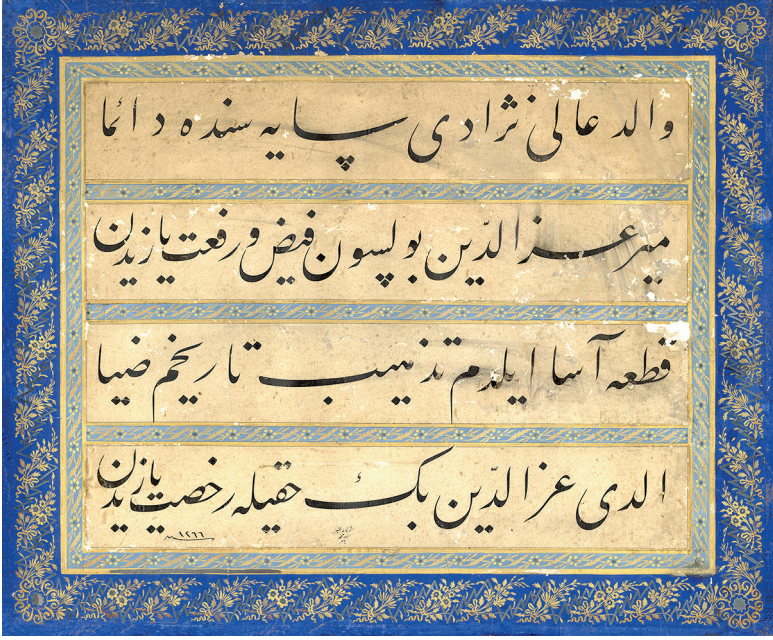 والد عالی نژادی سایه سنده دائما
میر عز الدّین بولسون فیض و رفعت یازیدن
قطعه آسا ایلدم تذهیب تاریخم ضیا
الدی عز الدّین بك حقیله رخصت یازیدن
١٢٦٦